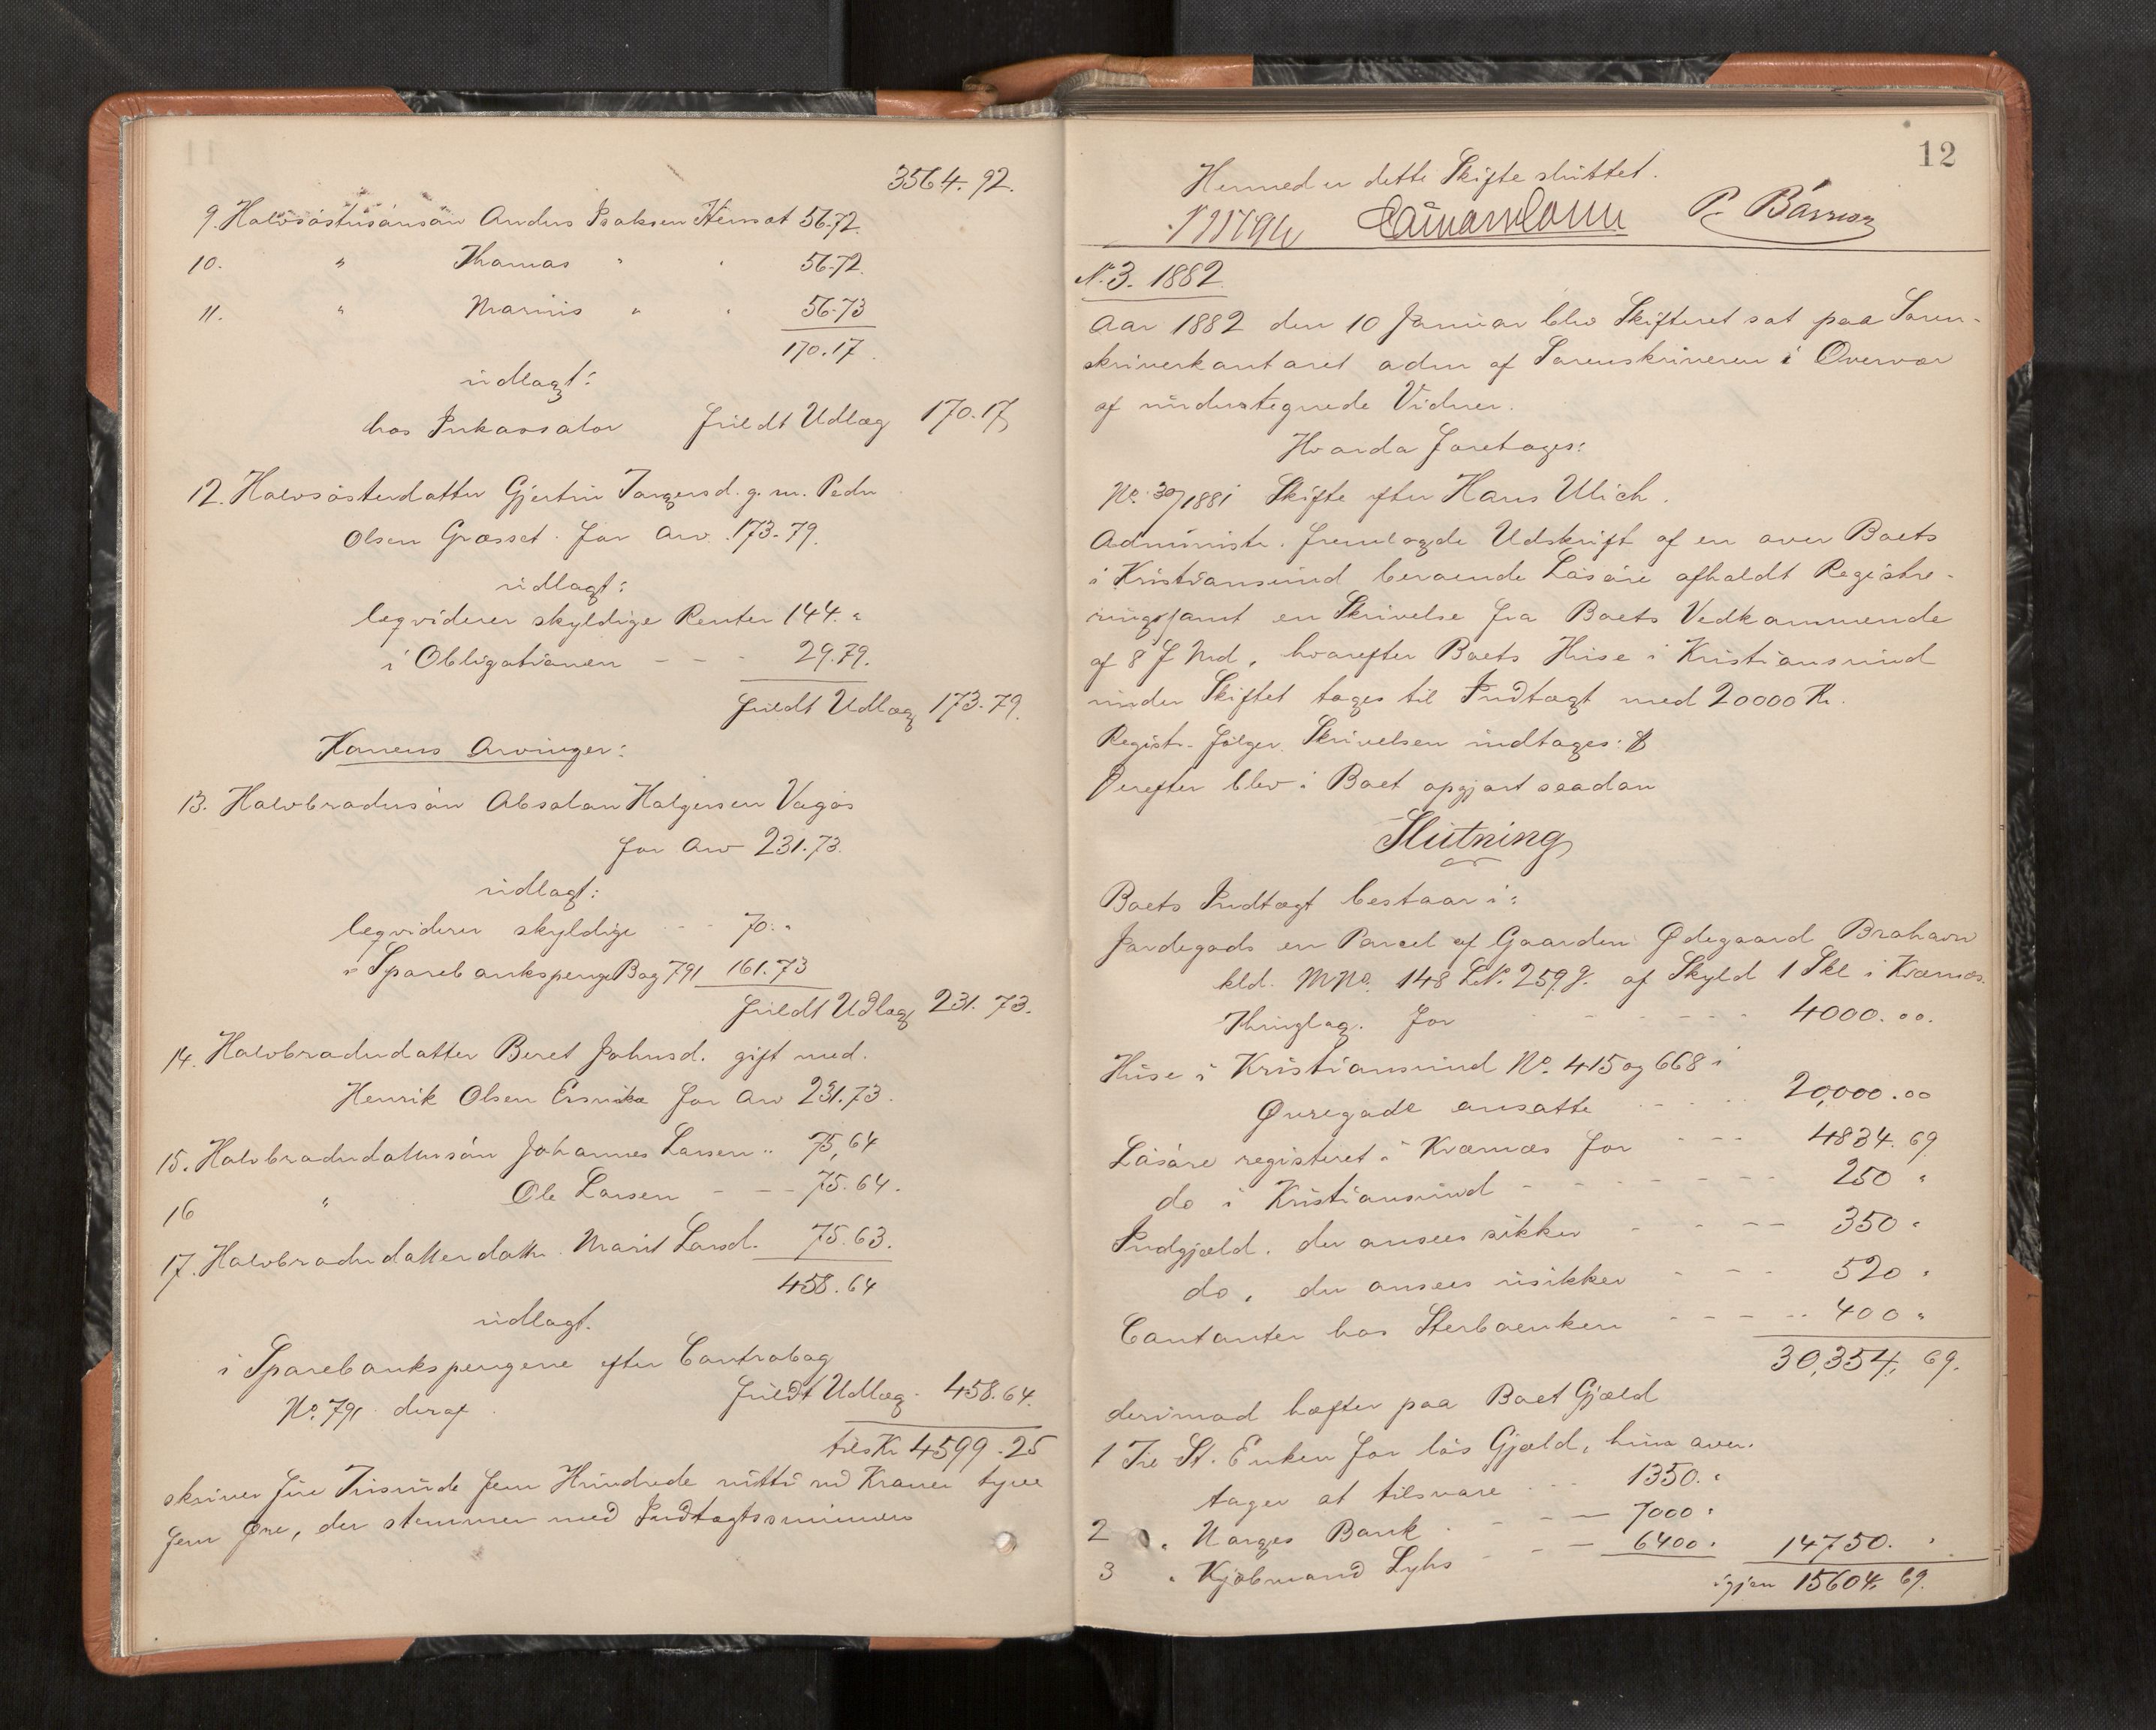 3564.92.
9. Halvsøstersønsøn Anders Isaksen Hensat 56.72.
10. " Thomas " " 56.72.
11. " Marius " " 56.73
170.17.
udlagt:
hos Inkassator fuldt Udlæg 170.17
12. Halvsøsterdatter Gjertru Torgersd. g. m. Peder
Olsen Grøsset for Arv 173.79.
udlagt:
leqviderer skyldige Renter 144. "
i Obligationen - - - 29.79.
fuldt Udlæg 173.79.
Konens Arvinger:
13. Halvbrodersøn Absalon Halgersen Vagøs
for Arv 231.73.
udlagt:
leqviderer skyldige - - 70. "
i Sparebankspenge Bog 791 161.73
fuldt Udlæg 231.73.
14. Halvbroderdatter Beret Johnsd. gift med
Henrik Olsen for Arv 231.73.
15. Halvbroderdattersøn Johannes Larsen " 75,64
16 " Ole Larsen - - - 75.64.
17. Halvbroderdatterdatter Marit Larsd. 75.63.
458.64
udlagt.
i Sparebankspengene efter Contrabog
No. 791 deraf fuldt Udlæg 458.64.
tils Kr 4599.25
skriver fire Tusinde fem Hundrede nitti ni Kroner tyve
fem Øre, der stemmer med Indtægtssummen
12
Hermed er dette Skifte sluttet.
N. 3. 1882.
Aar 1882 den 10 Januar blev Skifteret sat paa Soren-
skriverkontoret adm af Sorenskriveren i Overvær
af undertegnede Vidner.
Hvorda foretoges:
No. 30/1881 Skifte efter Hans Ulich.
Administr. fremlagde Udskrift af en over Boets
i Kristiansund beroende Løsøre afholdt Registre-
ring samt en Skrivelse fra Boets Vedkommende
af 8 f Md, hvorefter Boets Huse i Kristiansund
under Skiftet tages til Indtægt med 20000 Kr.
Registr. følger. Skrivelsen indtages:
Derefter blev i Boet opgjort saadan
Slutning
Boets Indtægt bestaar i:
Jordegods en Parcel af Gaarden Ødegaard Brahavn
kld. MNo. 148 LN. 259g. af Skyld 1 Skl i Kvernes
Thinglag. for - - - - - 4000.00.
Huse i Kristiansund No. 415 og 668 i
Øvregade ansatte - - - 20,000.00
Løsøre registeret i Kvernes for - - - 4834.69
do i Kristiansund - - - - - - 250 "
Indgjæld. der ansees sikker - - - - 350 "
do. der ansees usikker - - - 520 "
Contanter hos Sterboenken - - - - 400 "
30,354,69.
derimod hæfter paa Boet Gjæld
1 Til St. Enken for løs Gjæld, hun over-
tager at tilsvare - - - 1350. "
2 " Norges Bank - - - - 7000 "
3 " Kjøbmand Lyhs - - - 6400 " 14750. "
igjen 15604,69.